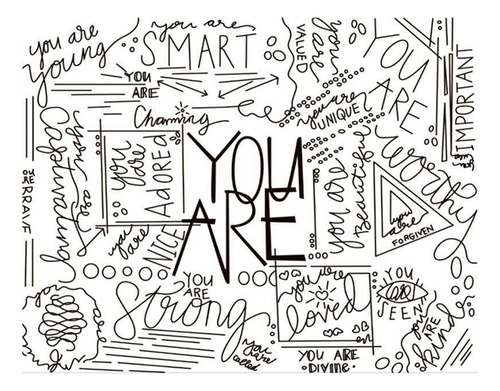 you are
young
you are
SMART
YOU
ARE
Charming
you are
VALUED
you
are
YOU
ARE
IMPORTANT
you are
UNIQUE
you are
Captivating
you
are
ADORED
YOU
ARE
you are
Beautiful
worthy
you
are
FORGIVEN
YOU
ARE
BRAVE
you
are
NICE
YOU
ARE
Strong
you are
loved
YOU
ARE
SEEN
you
ARE
kind
you
are
called
YOU ARE
DIVINE